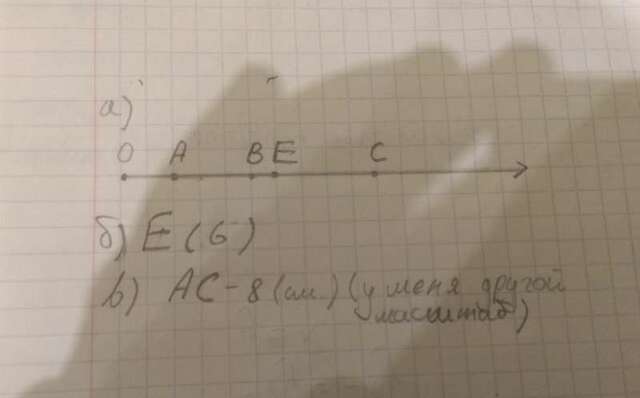 а)
O A B E C
б) E (6)
в) AC - 8 (см) (у меня другой
масштаб)